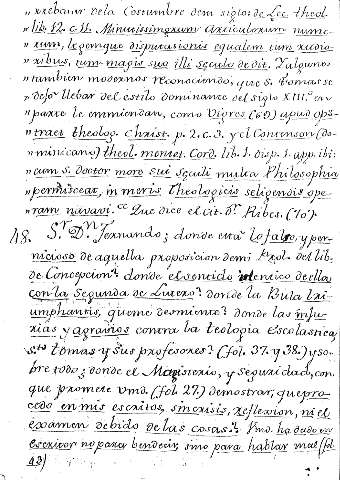 rrebatar de la Costumbre de su siglo: de Loc. theol.
lib. 12. c. 11. Minutissimorum Articulorum nume-
rum, legemque disputationis equalem cum rudio-
ribus, cum magis sua illi sæculo dedit. Y algunos
tambien modernos reconociendo, que S. Tomas se
dejo llebar del estilo dominante del siglo XIII.º en
parte le enmiendan, como Vigres (69) apud
tract. theolog. Christ. p. 2. c. 3. y el Contenson (do-
minicano) theol. mentet. Cord. lib. 1. disp. 1. app. ibi:
cum S. doctor more sui sæculi multa Philosophia
permisceat, in meris Theologicis seligendis ope-
ram navavi. Que dice el cit. Pe. Ribes. (70).
48. Sr. Dn. Fernando; donde està lo falso, y per-
nicioso de aquella proposicion de mi Prol. del lib.
de Concepcion? donde el sentido identico de ella
con la Segunda de Lutero? donde la Bula tri-
umphantis, que me desmiente? donde las inju-
rias y agravios contra la teologia Escolastica,
Sto. tomas y sus profesores? (fol. 37. y 38.) y so-
bre todo; donde el Magisterio, y Seguridad, con-
que promete Vmd. (fol. 27.) demostrar, que pro-
cedo en mis escritos, sin crisis, reflexion, ni el
examen debido de las cosas? Vmd. ha dado en
escritor no para bendecir, sino para hablar mal (fol.
48)